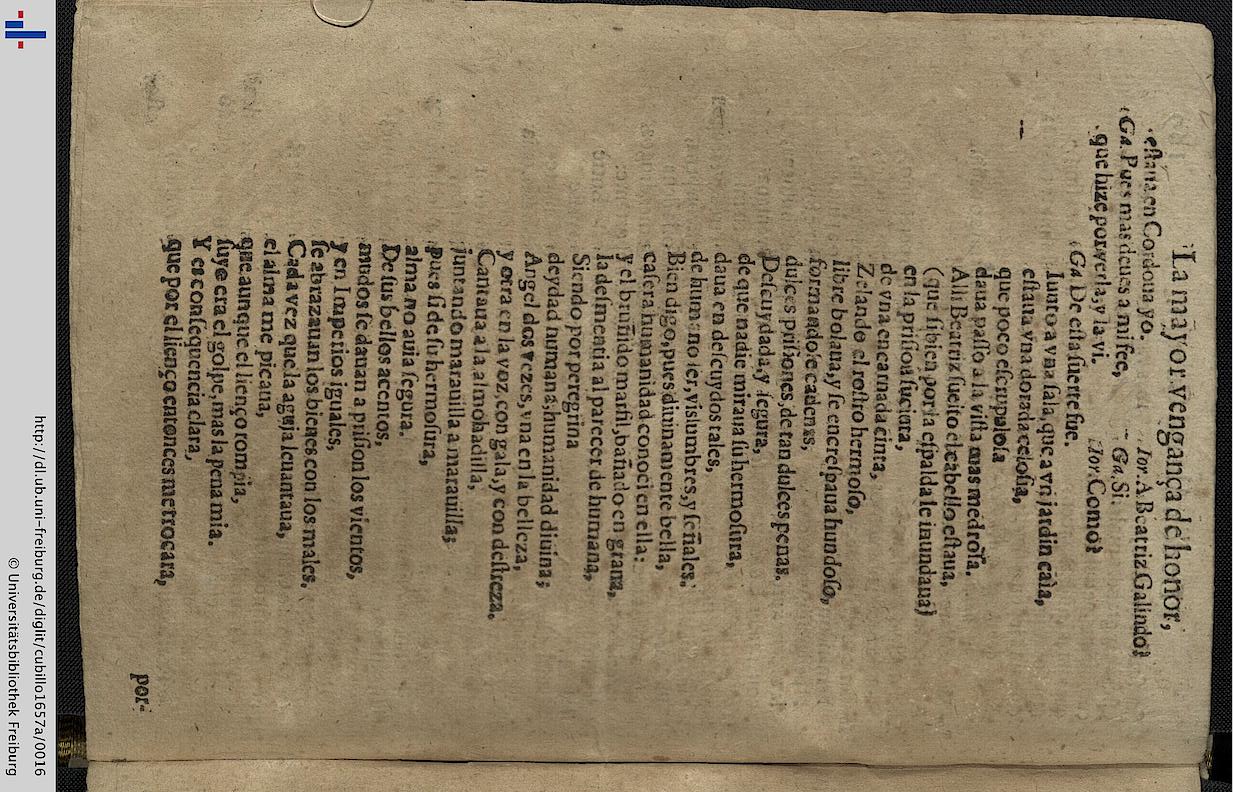 La mayor vengança de honor,
estaua en Cordoua yo. Ior. A Beatriz Galindo?
Ga. Pues mas deues a mi fee, Ga. Si.
que hize por verla, y la vi. Ior. Como?
Ga. De esta suerte fue.
Iunto a vna sala, que a vn jardin caìa,
estaua vna dorada celosia,
que poco escrupulosa
daua passo a la vista mas medrosa.
Alli Beatriz suelto el cabello estaua,
(que si bien por la espalda le inundaua)
en la prision suciora,
de vna encarnada cinta,
Zelando el rostro hermoso,
libre bolaua, y se encrespaua hundoso,
formandose cadenas,
dulces prisiones, de tan dulces penas.
Descuydada, y segura,
de que nadie miraua su hermosura,
daua en descuydos tales,
de humano ser, vislumbres, y señales.
Bien digo, pues diuinamente bella,
casera humanidad conoci en ella:
y el bruñido marfil, bañado en grana,
la desmentia al parecer de humana,
Siendo por peregrina
deydad humana, humanidad diuina;
Angel dos vezes, vna en la belleza,
y otra en la voz, con gala, y con destreza.
Cantaua a la almohadilla,
juntando marauilla a marauilla;
pues si de su hermosura,
alma no auia segura.
De sus bellos acentos,
mudos se dauan a prision los vientos,
y en Imperios iguales,
se abrazauan los bienes con los males.
Cada vez que la aguja leuantaua,
el alma me picaua,
que aunque el lienço rompia,
suyo era el golpe, mas la pena mia.
Y es consequencia clara,
que por el lienço entonces me trocara,
por-
http://dl.ub.uni-freiburg.de/diglit/cubillo1657a/0016
© Universitätsbibliothek Freiburg